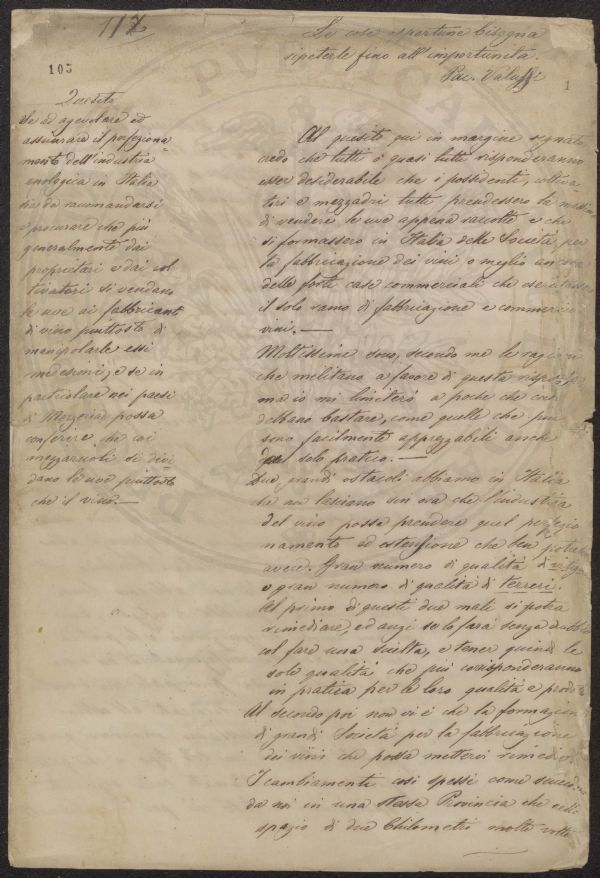 117
Le cose opportune bisogna
ripeterle fino all'importunità.
Pac. Valussi
105
1
Quesito
Se ad agevolare ed
assicurare il perfeziona
mento dell'industria
enologica in Italia
sia da raccomandarsi
e procurare che più
generalmente dai
proprietari e dai col
tivatori si vendano
le uve ai fabbricanti
di vino piuttosto di
manipolarle essi
medesimi, e se in
particolare nei paesi
di Mezzeria possa
conferire, che coi
mezzaruoli si divi
dano le uve piuttosto
che il vino.—
Al quesito qui in margine segnato
credo che tutti o quasi tutti risponderanno
esser desiderabile che i possidenti, coltiva
tori o mezzadri tutti prendessero la massima
di vendere le uve appena raccolte e che
si formassero in Italia delle Società per
la fabbricazione dei vini o meglio ancora
delle forti case commerciali che esercitassero
il solo ramo di fabbricazione e commercio
vini.—
Moltissime sono, secondo me le ragioni
che militano a favore di questa risposta
ma io mi limiterò a poche che cre
debbano bastare, come quelle che più
sono facilmente apprezzabili anche
solo pratico.—
Due grandi ostacoli abbiamo in Italia
che non lasciano sin ora che l'industria
del vino possa prendere quel perfezio
namento ed estensione che ben potrebbe
avere. Gran numero di qualità di vitigni
e gran numero di qualità di terreni.
Al primo di questi due mali si potrà
rimediare, ed anzi se lo farà senza dubbio
col fare una scielta, e tener quindi le
sole qualità che più corrisponderanno
in pratica per le loro qualità e prodotto
Al secondo poi non vi è che la formazione
di grandi Società per la fabbricazione
dei vini che possa mettervi rimedio.
I cambiamenti così spessi come succedono
da noi in una stessa Provincia che nello
spazio di due Chilometri molte volte